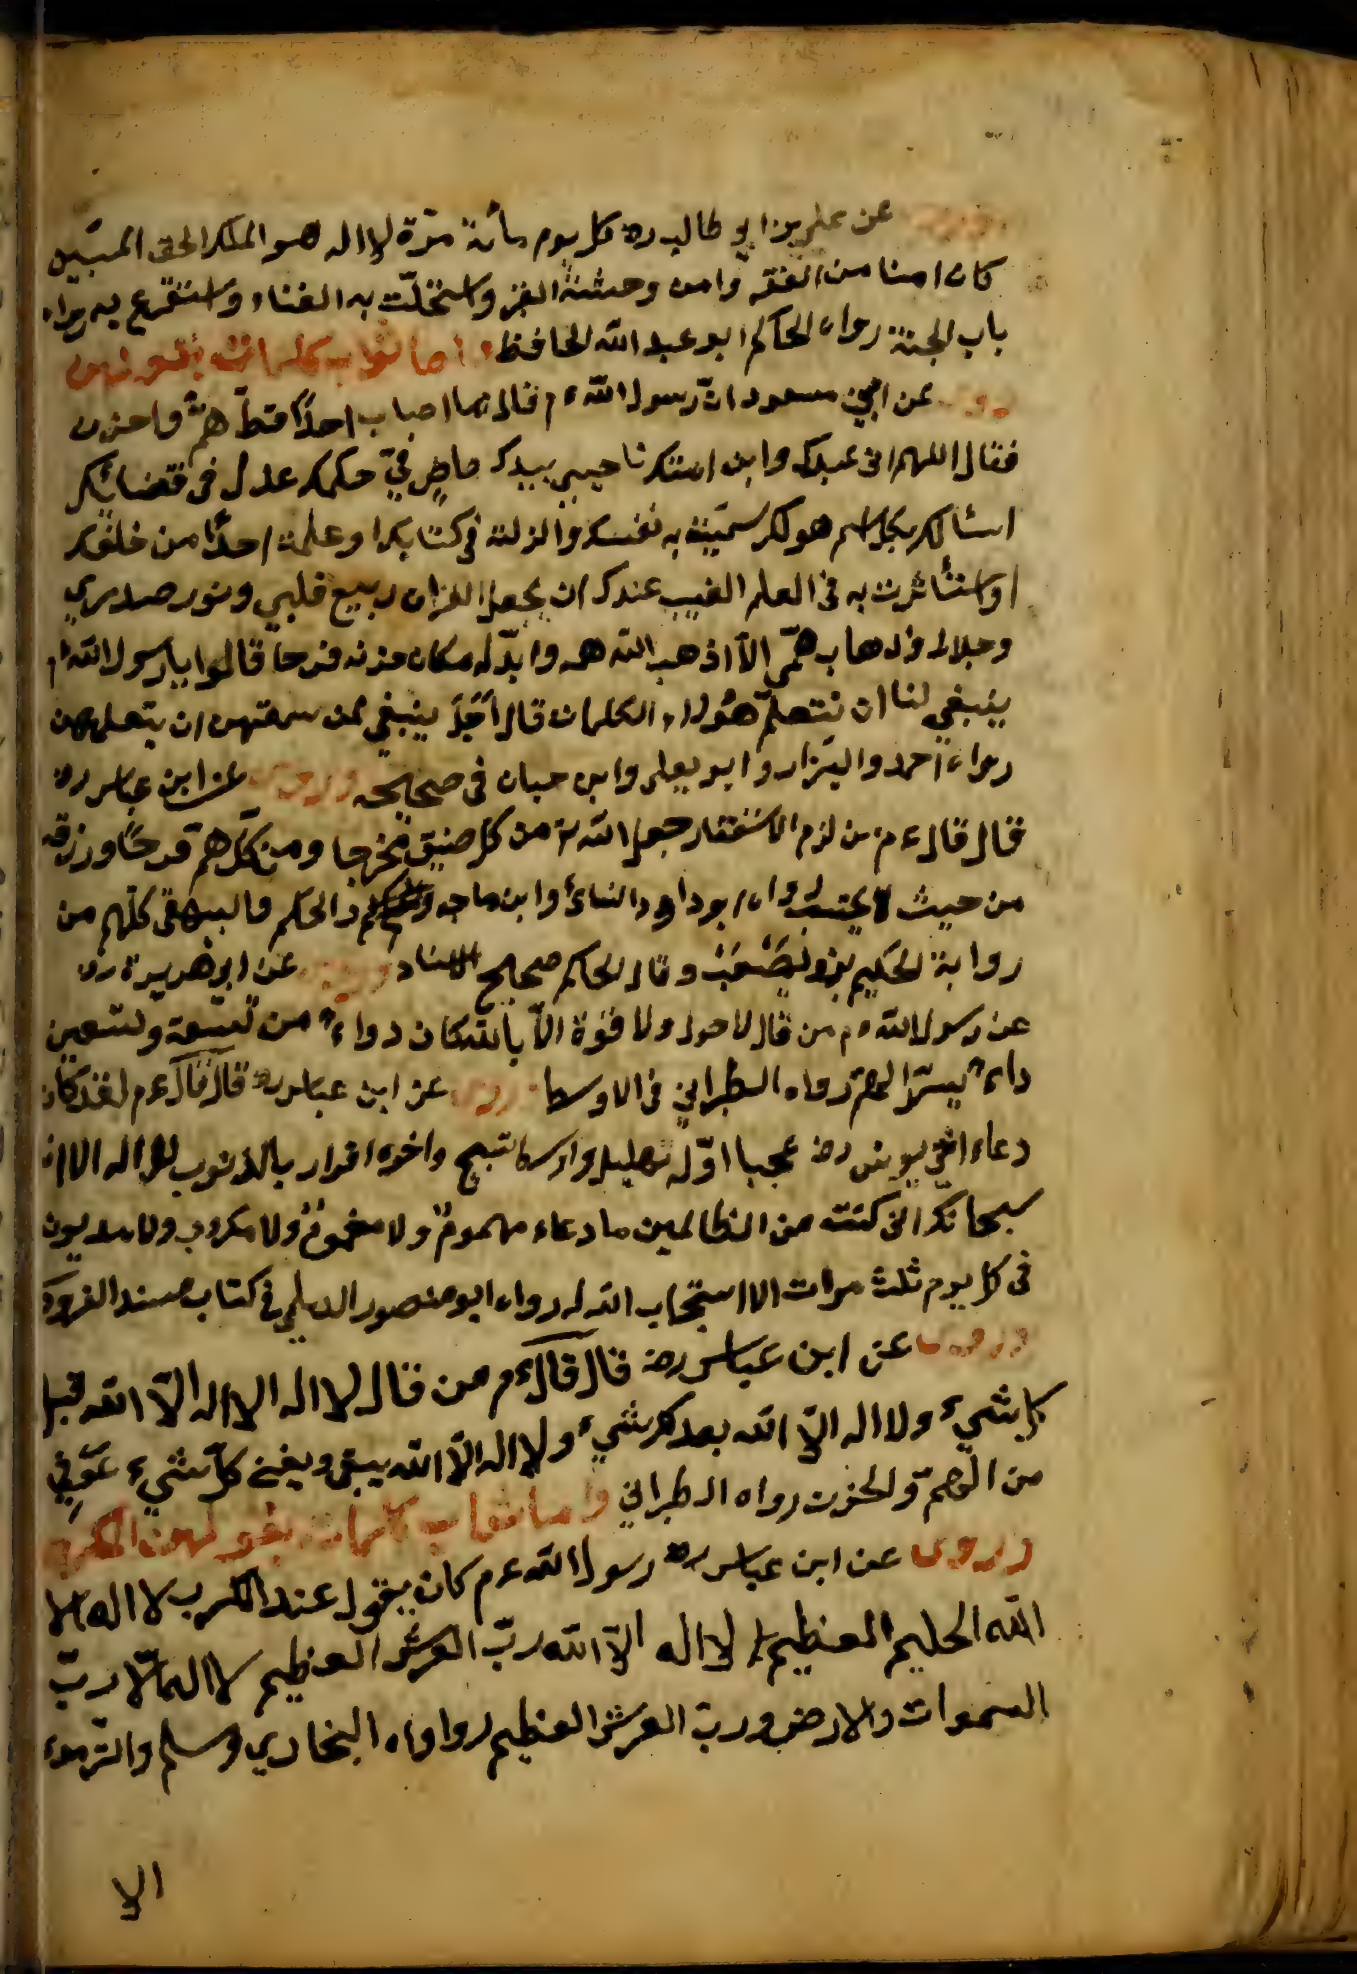 وروى عن علي بن ابي طالب رض كل يوم مأنة مرّة لا اله هو الملك الحق المبين
كان امنا من الفقر وامن وحشة القبر واستجلّت به الغناء واستقرع به
باب الجنة رواه الحاكم ابو عبد الله الحافظ واما ثواب كلمات يقولهن
وروى عن ابن مسعود انّ رسول الله ءم قال ما اصاب احدًا قطّ همّ واحزن
فقال اللهم انى عبدك وابن امتك ناصيتي بيدك ماضٍ فيّ حكمك عدل فى قضائك
اسئالك بكل اسم هو لك سمّيته به نفسك وانزلته فى كتابك او علمته احدًا من خلقك
او استأثرت به فى العلم الغيب عندك ان تجعل القران ربيع قلبي ونور صدري
وجلاء وذهاب همّي الا اذهب الله همه وابدّله مكان حزنه فرحا قالوا يا رسول الله ءم
ينبغي لنا ان نتعلّم هؤلاء الكلمات قال اجَلْ ينبغي لمن سمعتهن ان يتعلمهن
رواه احمد والبزار وابو يعلى وابن حبان فى صحيحه وروى عن ابن عباس رض
قال قال ءم من لزم الاستغفار جعل الله له من كل ضيق مخرجا ومن كلّ هم فرجًا ورزقه
من حيث لا يحتسب رواه ابو داود والنسائ وابن ماجه والحكم والبيهقى كلّهم من
رواية الحكيم بن مصعب وقال الحاكم صحيح الاسناد وروى عن ابي هريرة رض
عن رسول الله ءم من قال لا حول ولا قوّة الاّ بالله كان دواءً من تسعة وتسعين
داءً يسرّ الهمّ رواه الطبراني فى الاوسط وروى عن ابن عباس رض قال قال ءم لقد كان
دعاء اخي يونس رض عجبا اوّله تهليل واوسط تسبيح واخره اقرار بالذنوب لا اله الا انت
سبحانك انى كنت من الظالمين ما دعاء مهمومٌ ولا مغمومٌ ولا مكروب ولا مديون
فى كل يوم ثلث مرات الا استجاب الله له رواه ابو منصور الديلمي فى كتاب مسند الفردوس
وروى عن ابن عباس رض قال قال ءم من قال لا اله الا اله الاّ الله قبل
كل شيء ولا اله الاّ الله بعد كل شيء ولا اله الاّ الله يبقى ويفنى كلّ شيء عوّفي
من الهمّ والحزن رواه الطبراني واما ثواب كلمات يقولهن المكروب
وروى عن ابن عباس رض رسول الله ءم كان يقول عند الكرب لا اله الا
الله الحليم العظيم لا اله الاّ الله ربّ العرش العظيم لا اله الاّ ربّ
السموات والارض ورب العرش العظيم رواه البخاري ومسلم والترمذي
الا